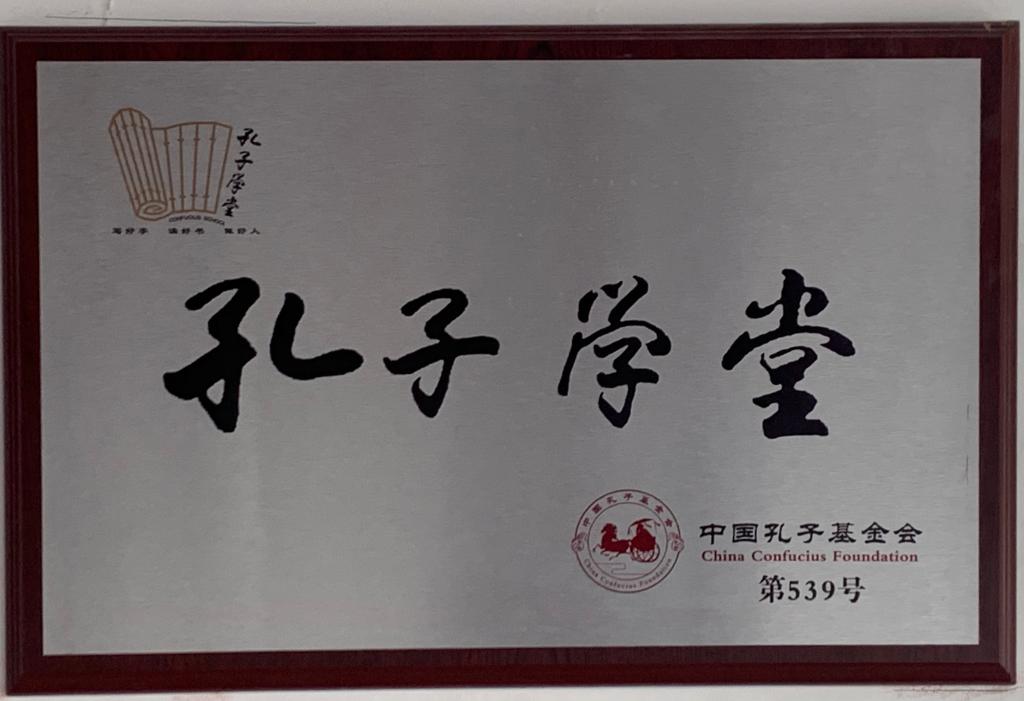 孔子学堂
CONFUCIUS SCHOOL
写好字 读好书 做好人
孔子学堂
中国孔子基金会
China Confucius Foundation
中国孔子基金会
China Confucius Foundation
第539号